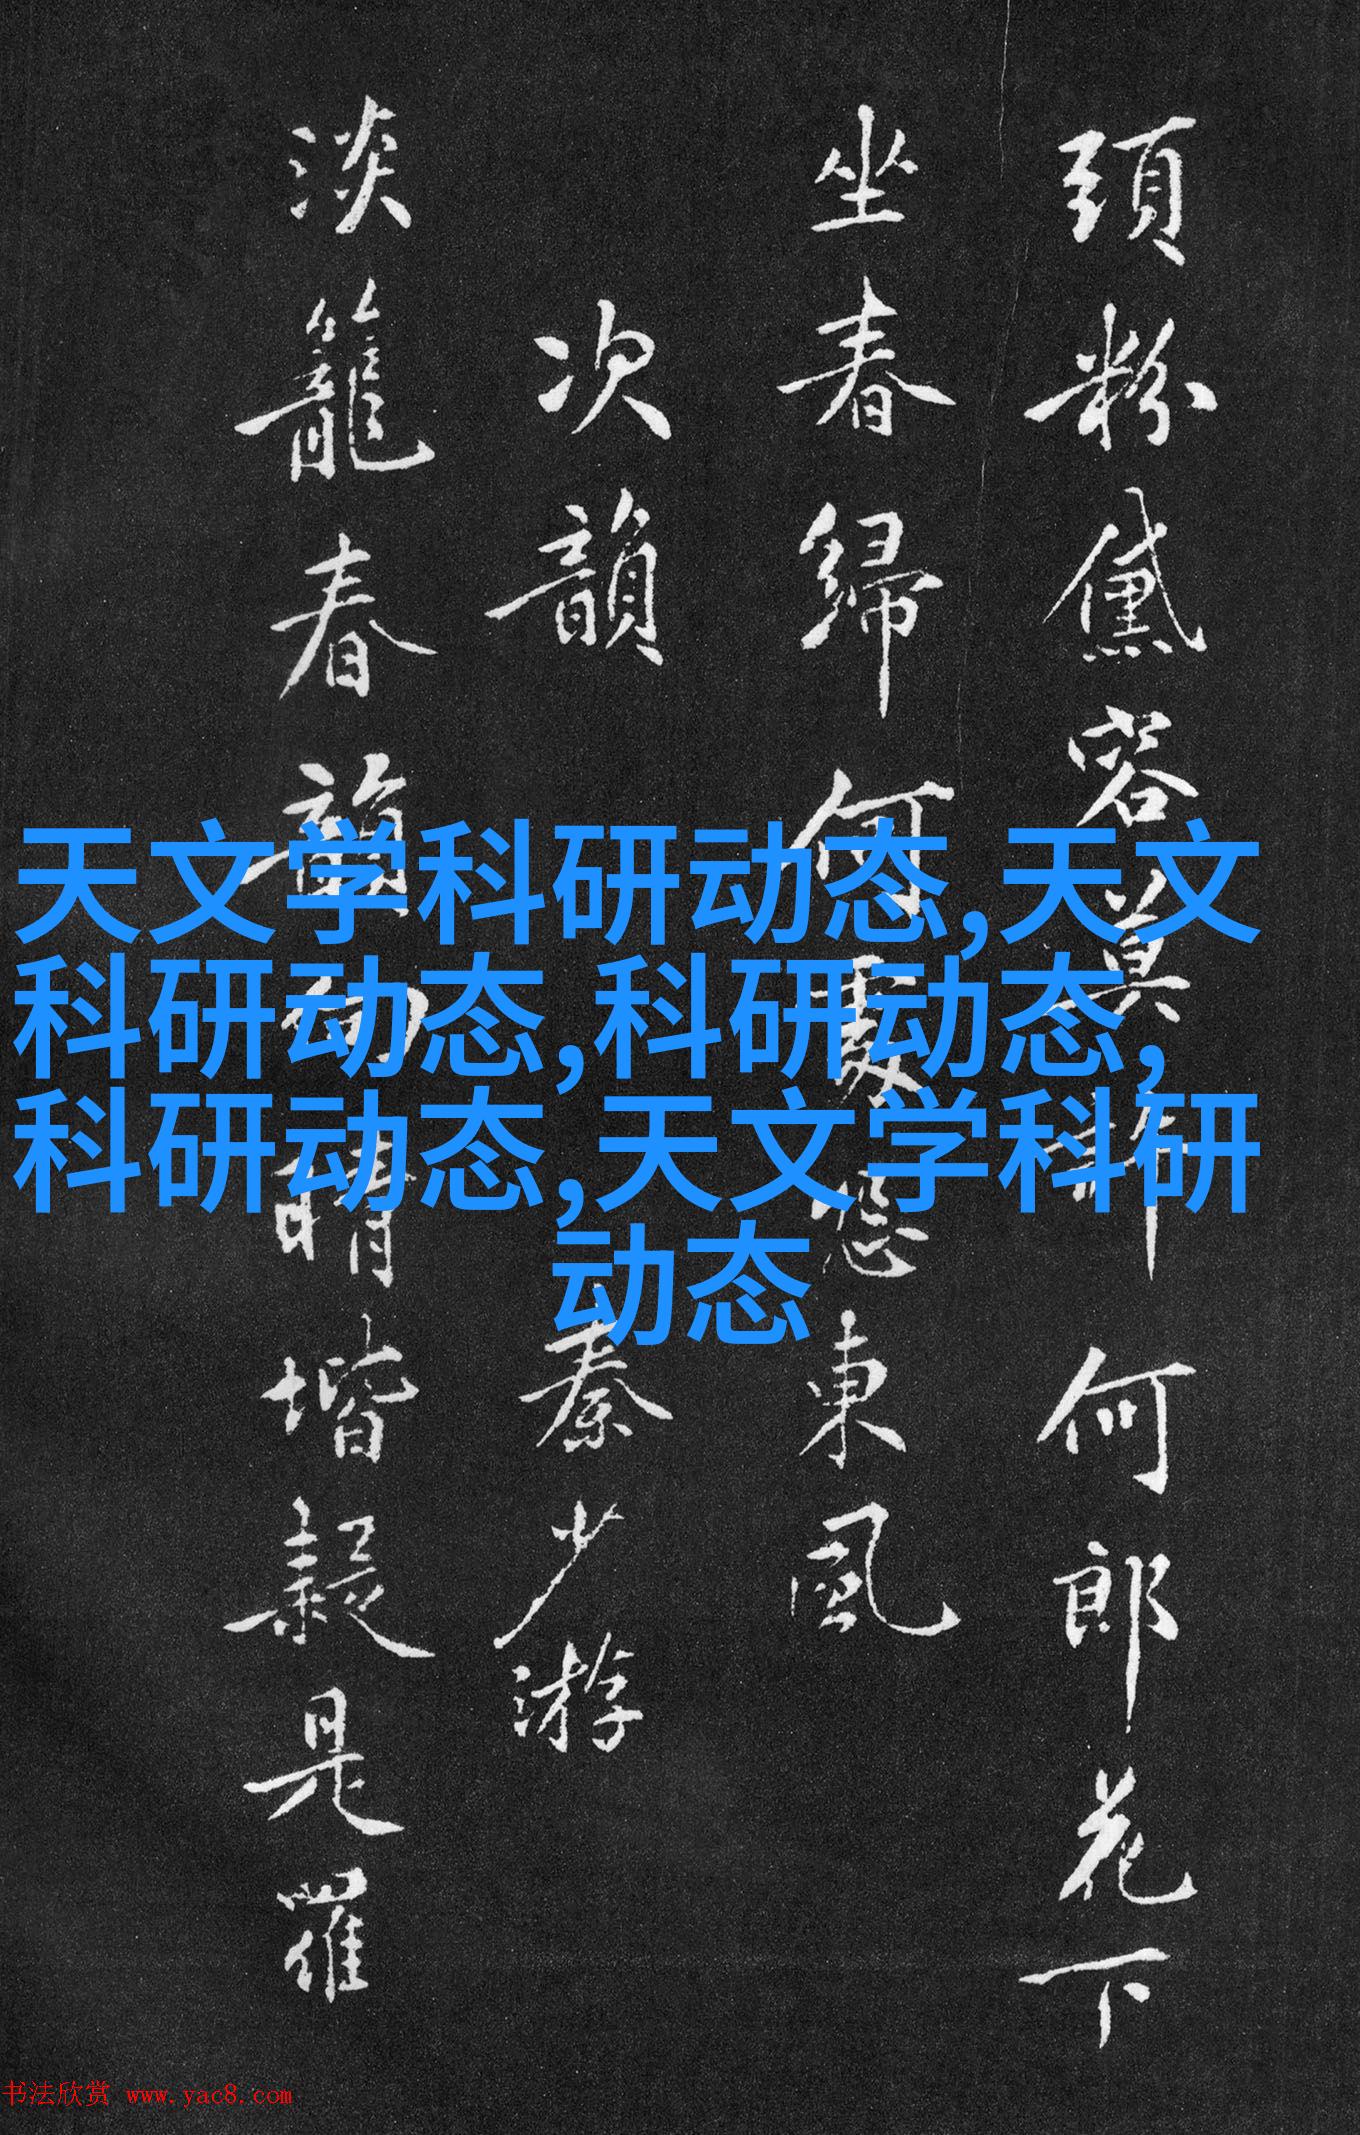 頭粉黛容莫許何郎花下
坐春歸何處怨東風
次韻 秦少游
淡籠春韻 晴堦疑是羅
天文学科研动态,天文
科研动态,科研动态,
科研动态,天文学科研
动态
书法欣赏 www.yac8.com